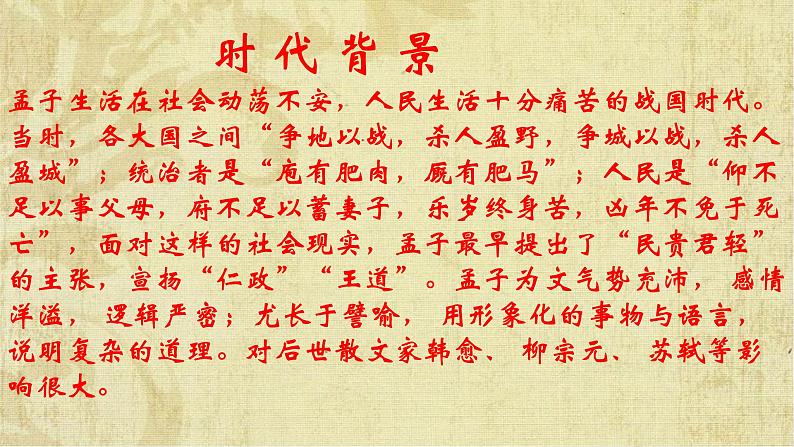 时代背景
孟子生活在社会动荡不安，人民生活十分痛苦的战国时代。
当时，各大国之间“争地以战，杀人盈野，争城以战，杀人
盈城”；统治者是“庖有肥肉，厩有肥马”；人民是“仰不
足以事父母，府不足以蓄妻子，乐岁终身苦，凶年不免于死
亡”，面对这样的社会现实，孟子最早提出了“民贵君轻”
的主张，宣扬“仁政”“王道”。孟子为文气势充沛， 感情
洋溢， 逻辑严密；尤长于譬喻， 用形象化的事物与语言，
说明复杂的道理。对后世散文家韩愈、 柳宗元、 苏轼等影
响很大。